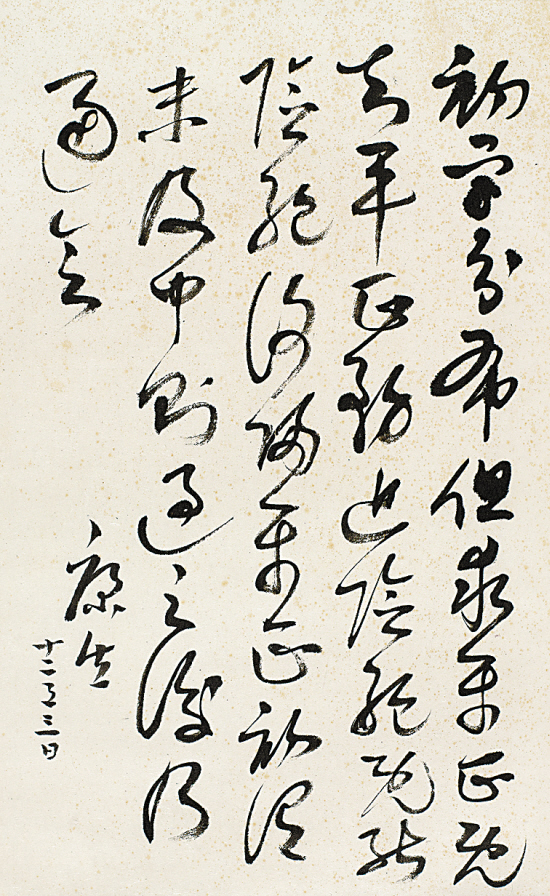 初学分布但求平正既
知平正務追险絶既能
险絶復歸平正初謂
未及中則過之後乃
通会
康生
十二月三日